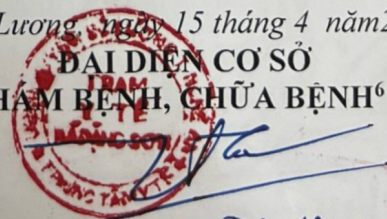 Lương, ngày 15 tháng 4 năm 2
ĐẠI DIỆN CƠ SỞ
HÁM BỆNH, CHỮA BỆNH⁶
TRẠM
Y TẾ
TRUNG TÂM Y TẾ